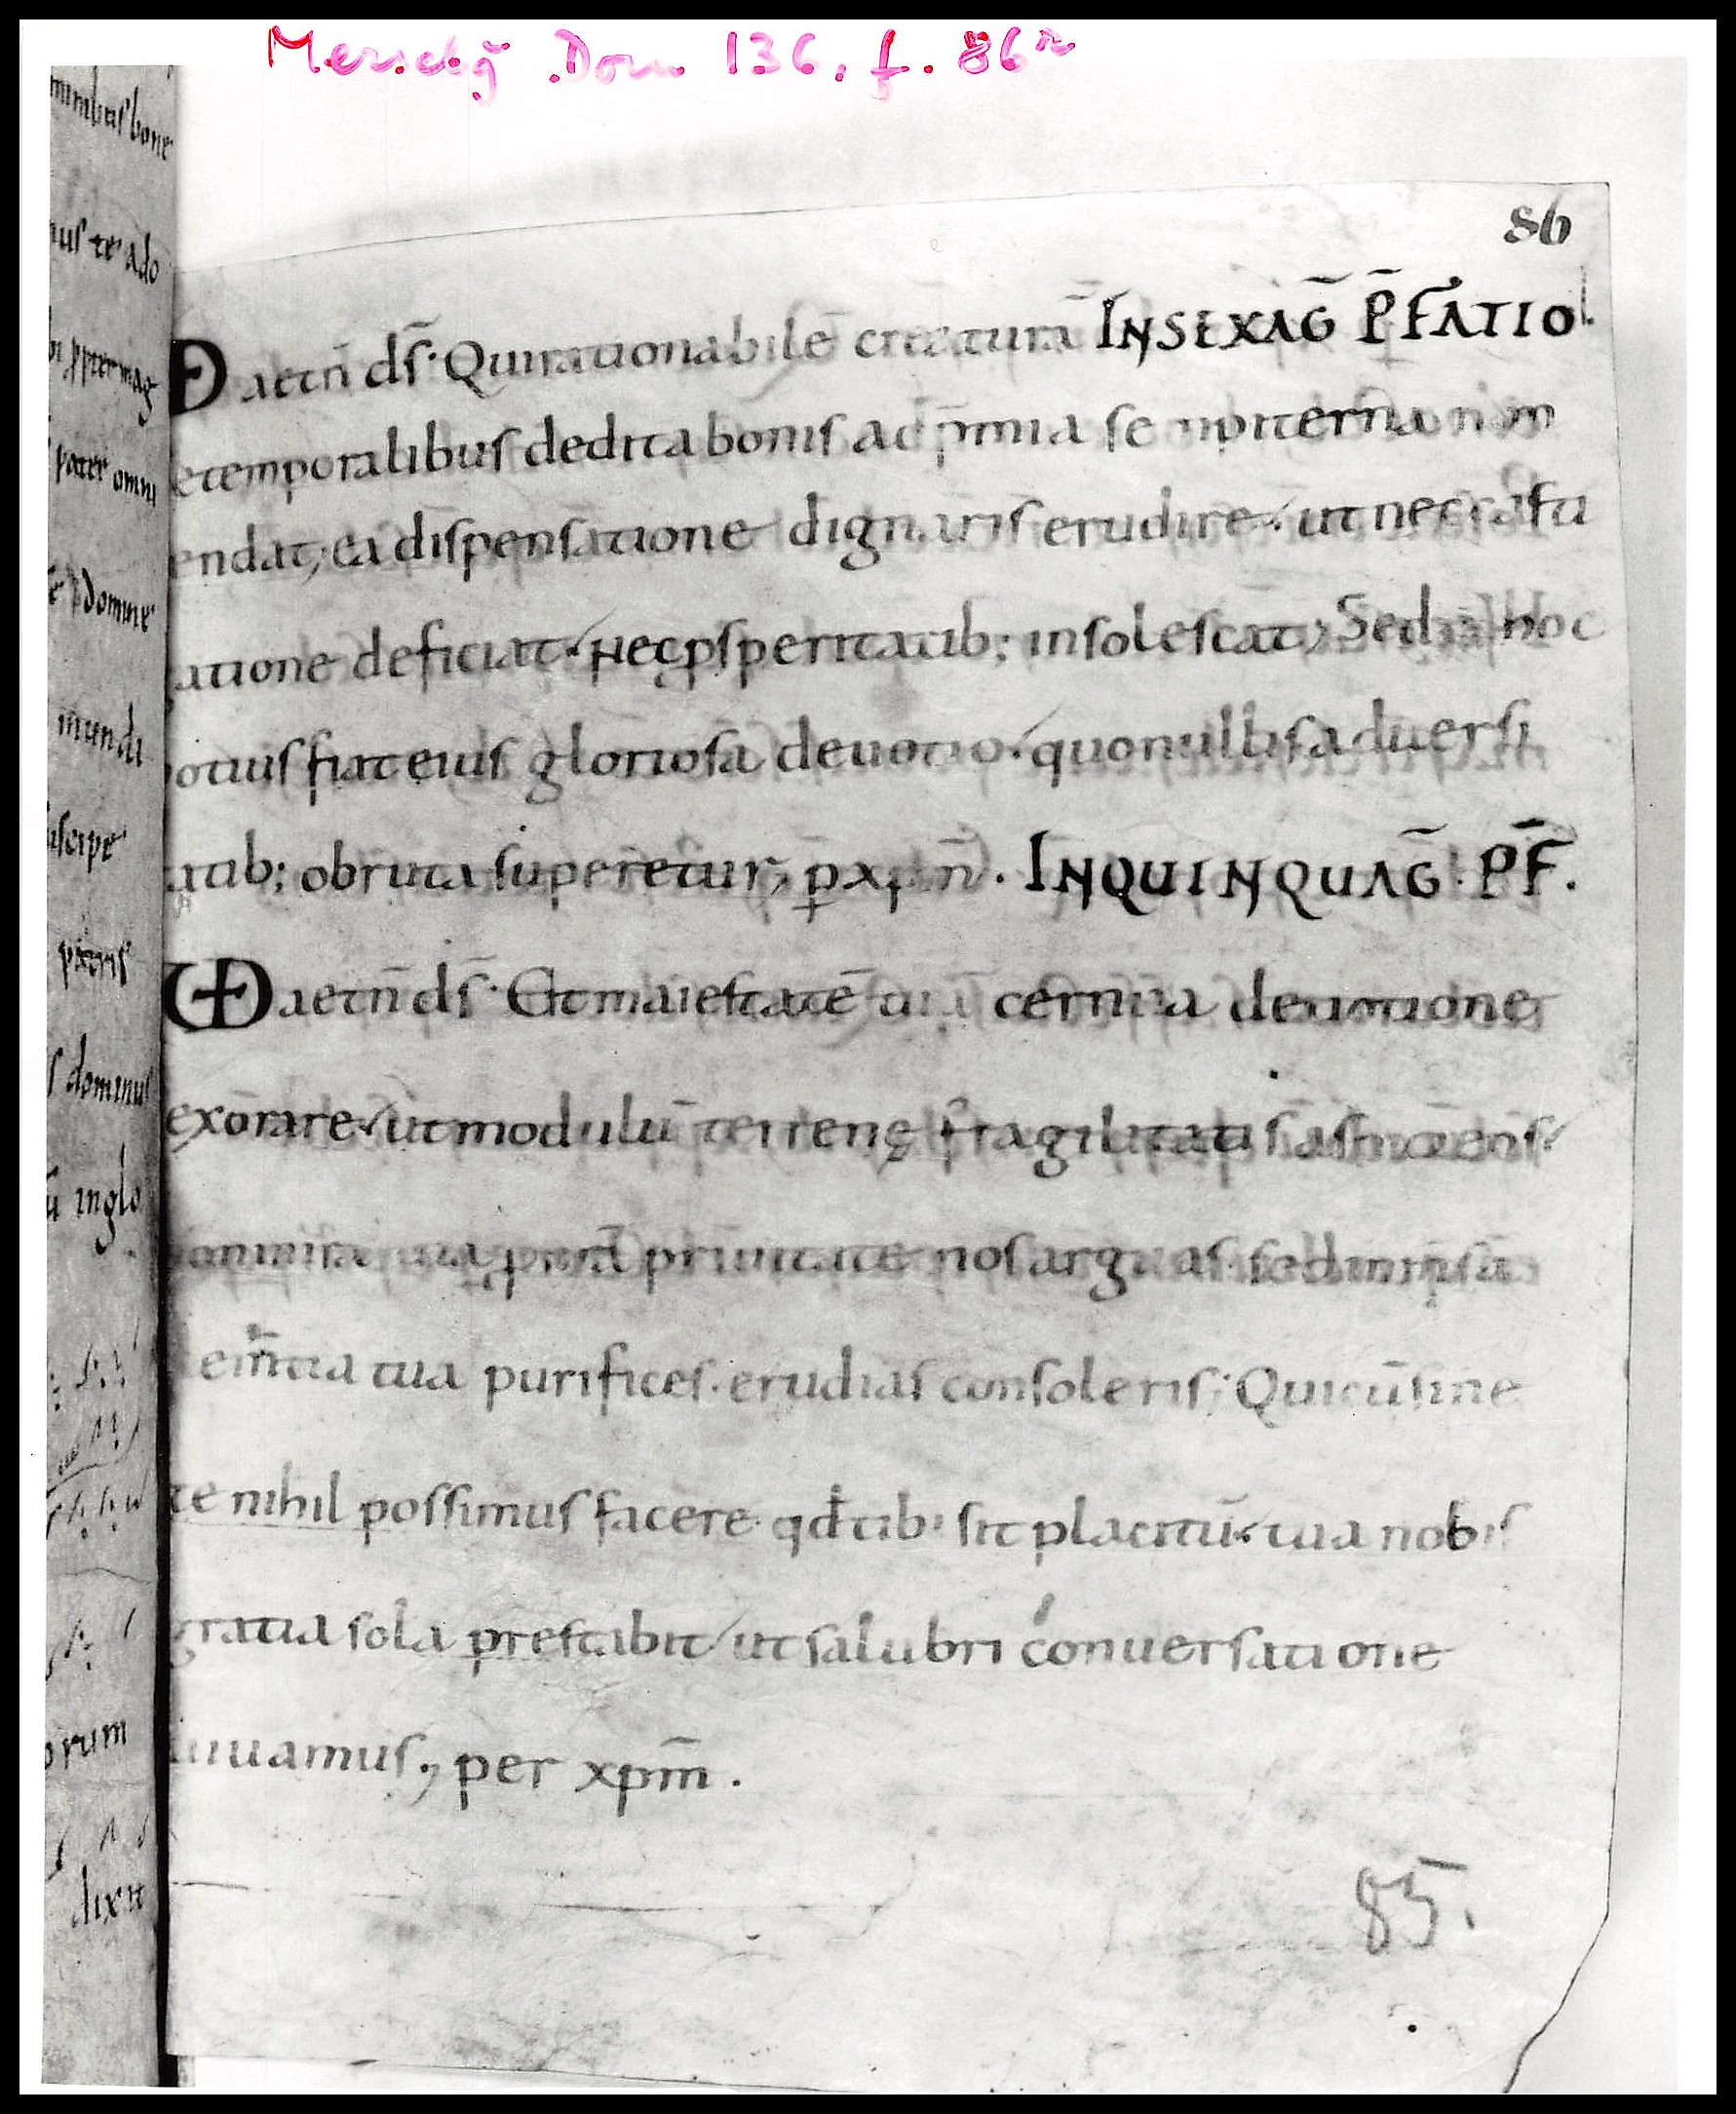 Merseb̃g Dom 136, f. 86r
86
INSEXAG̃ P̃FATIO.
VD aet̃n d̃s. Quirationabilẽ creaturã
etemporalibus dedita bonis ad p̃mia sempiterna non
endat, ea dispensatione dignaris erudire. ut nec casti
atione deficiat. nec ꝓsperitatib; insolescat, Sed hoc
otius fiat eius gloriosa deuotio. quo nullis aduersi
atib; obruta superetur, p̱ xp̃m. INQUINQUAG̃. P̃F.
VD aet̃n d̃s. Et maiestatẽ tuã cernua deuotione
exorare. ut modulũ terrenę fragilitatis aspiciens.
non in ira tua ꝓ nr̃a prauitate nos arguas. sed inm̃sa
em̃tia tua purifices. erudias consoleris; Qui cũ sine
te nihil possimus facere qđ tibi sit placitũ. tua nobis
gratia sola prestabit ut salubri conuersatione
uiuamus, per xp̃m.
85.
minibus bone
us te ado
pater omni
domine
mundi
uscipe
patris
s dominus
ũ inglo
orum
dixit